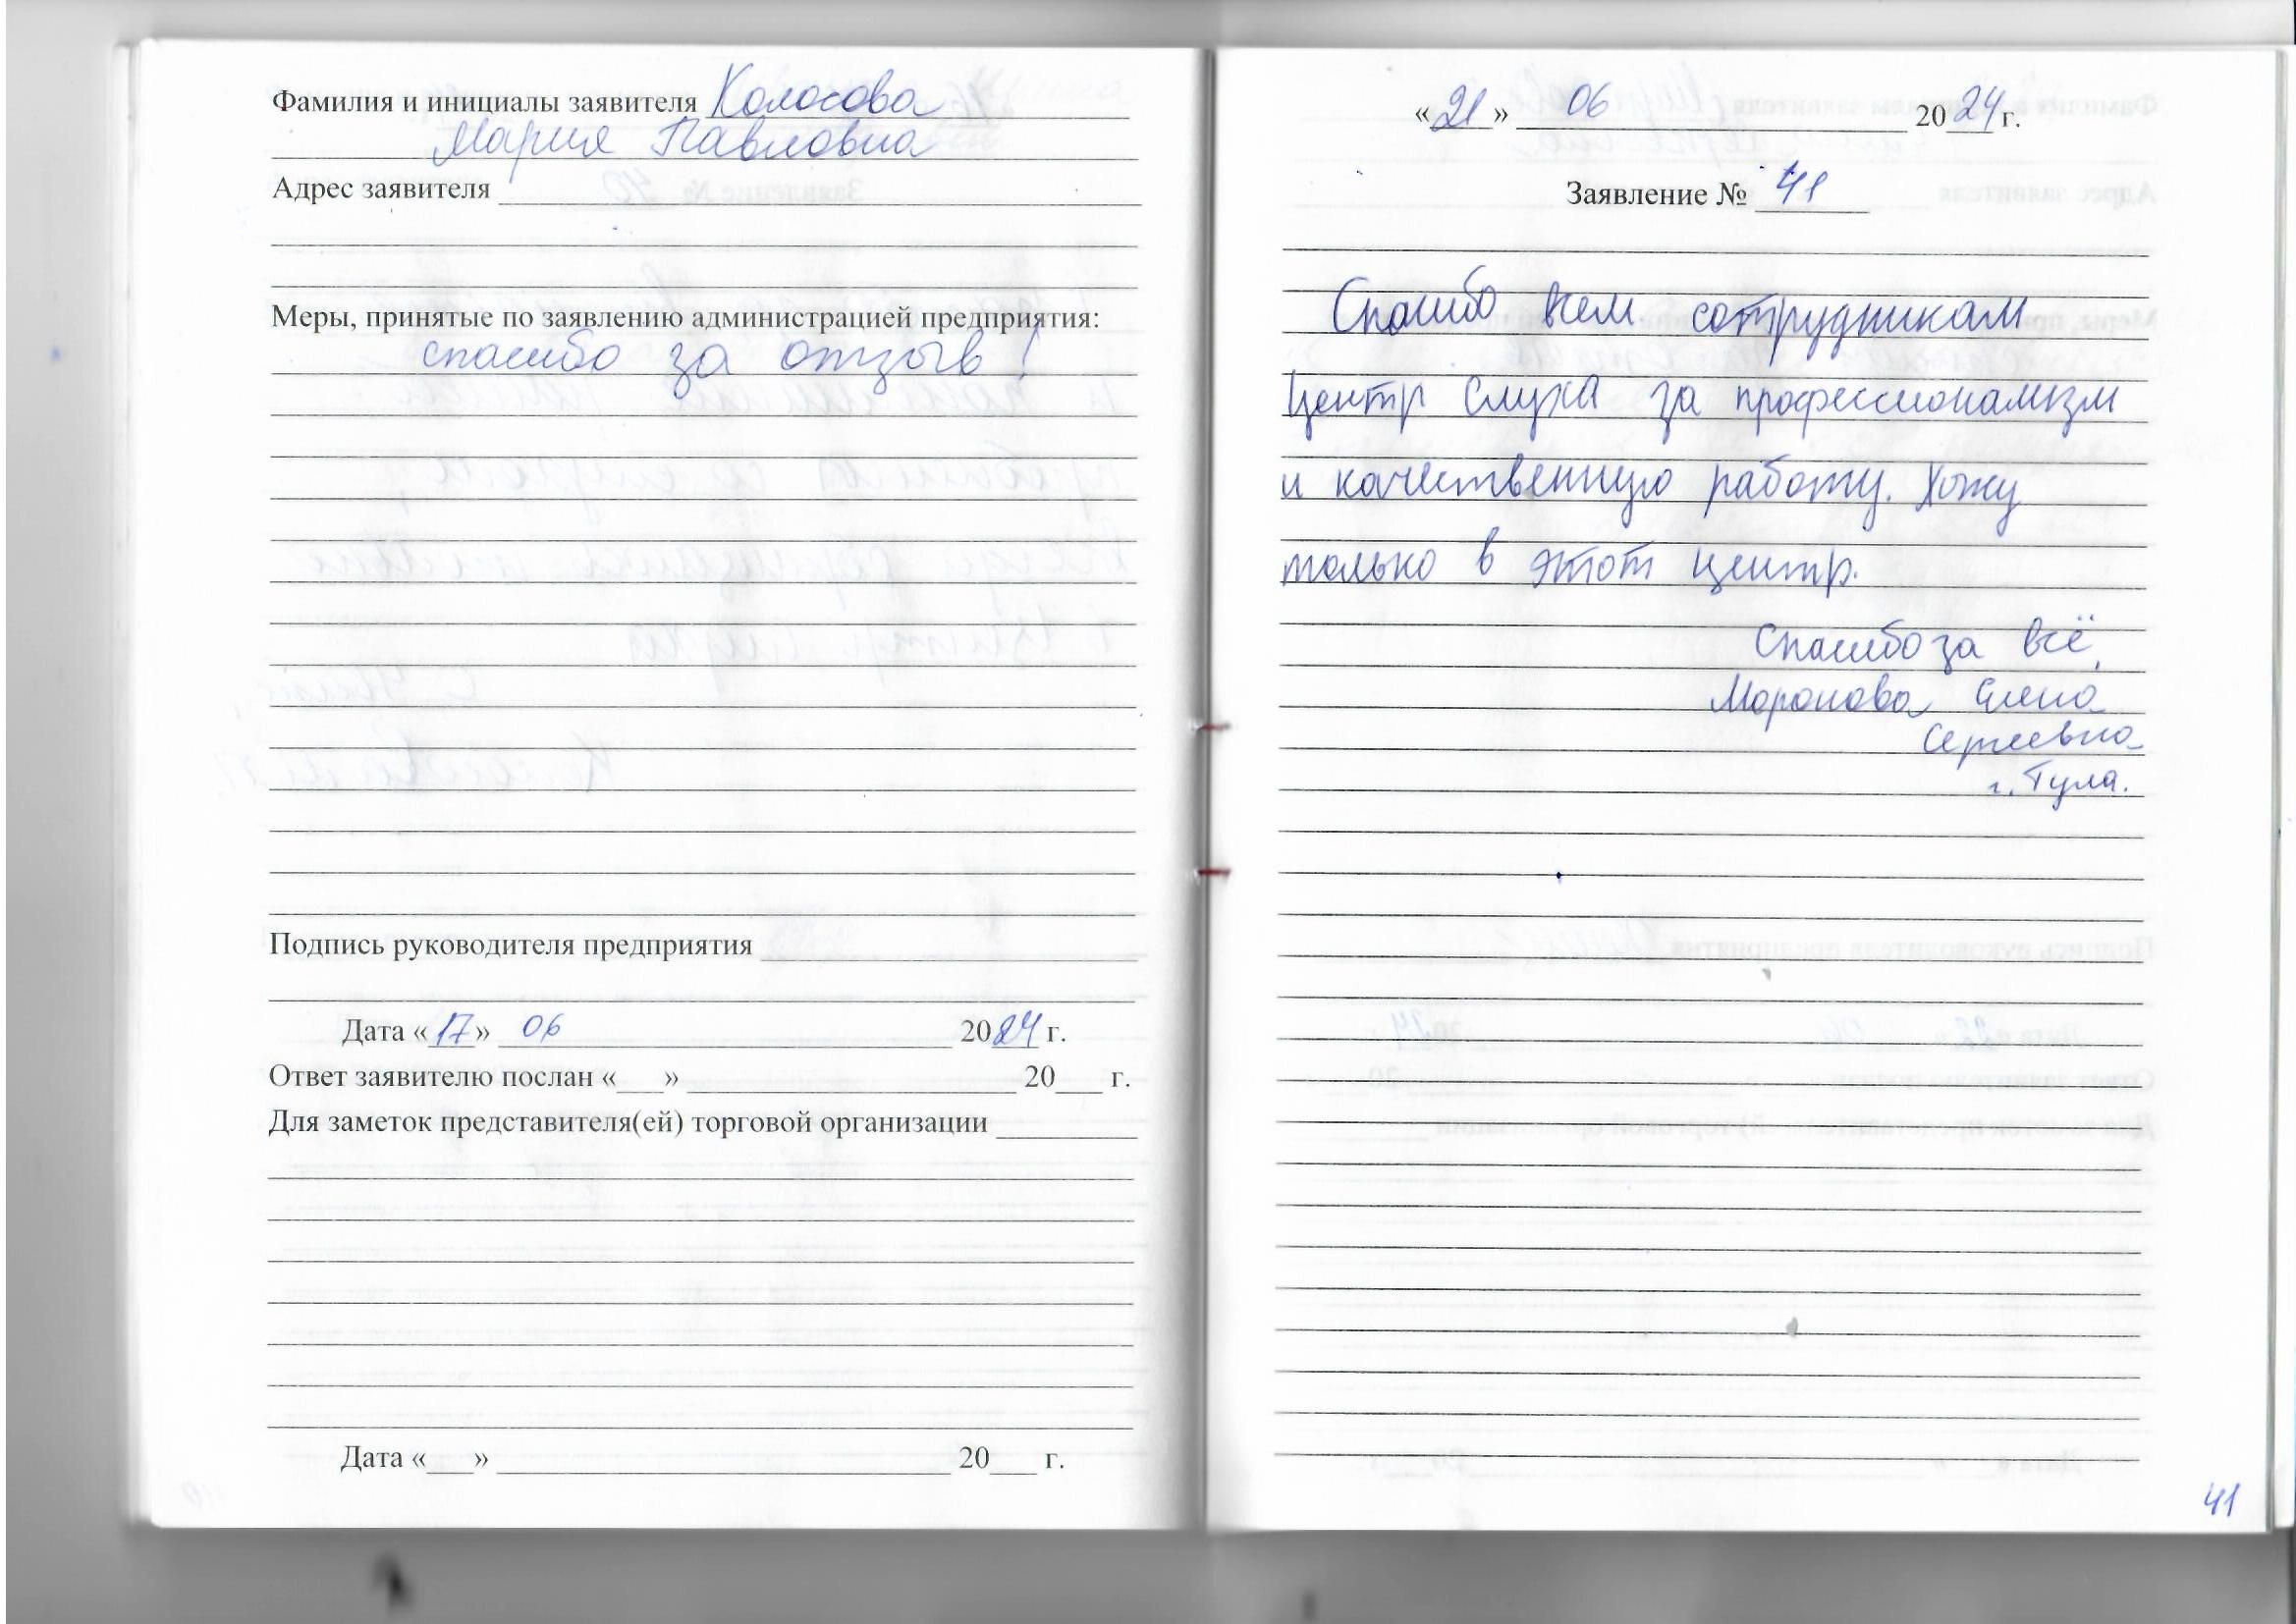 Фамилия и инициалы заявителя Колосова
Мария Павловна
Адрес заявителя
Меры, принятые по заявлению администрацией предприятия:
спасибо за отзыв!
Подпись руководителя предприятия
Дата «17» 06 2024 г.
Ответ заявителю послан «___» 20___ г.
Для заметок представителя(ей) торговой организации
Дата «___» 20___ г.
«21» 06 2024 г.
Заявление № 41
Спасибо всем сотрудникам
Центр Слуха за профессионализм
и качественную работу. Хожу
только в этот центр.
Спасибо за всё,
Миронова Елена
Сергеевна
г. Тула.
41